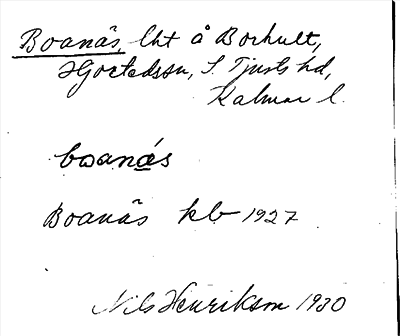 Boanäs, lht å Borhult,
Hjortedssn, S. Tjusts hd,
Kalmar l.
boanás
Boanäs kb 1927
Nils Henrikson 1930